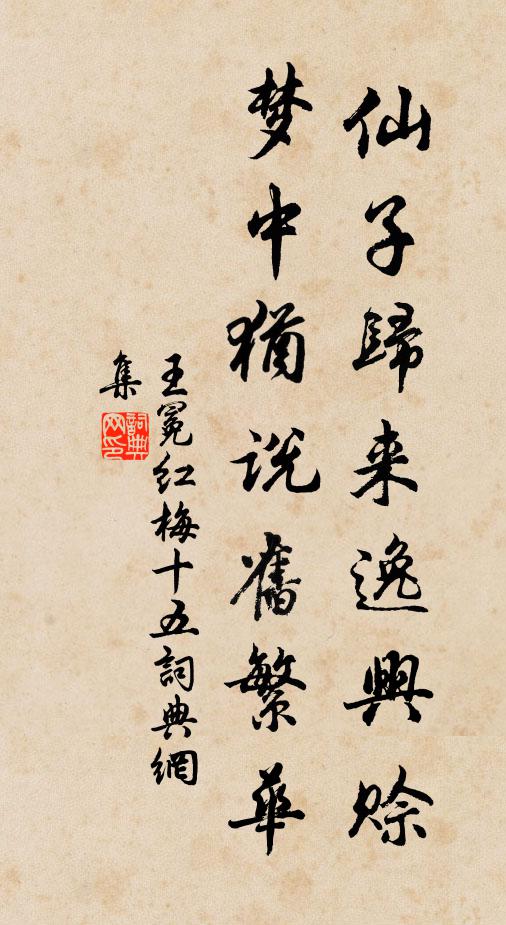 仙子歸来逸興賒
梦中猶説舊繁華
王冕红梅十五詞典網
集
詞典
网印